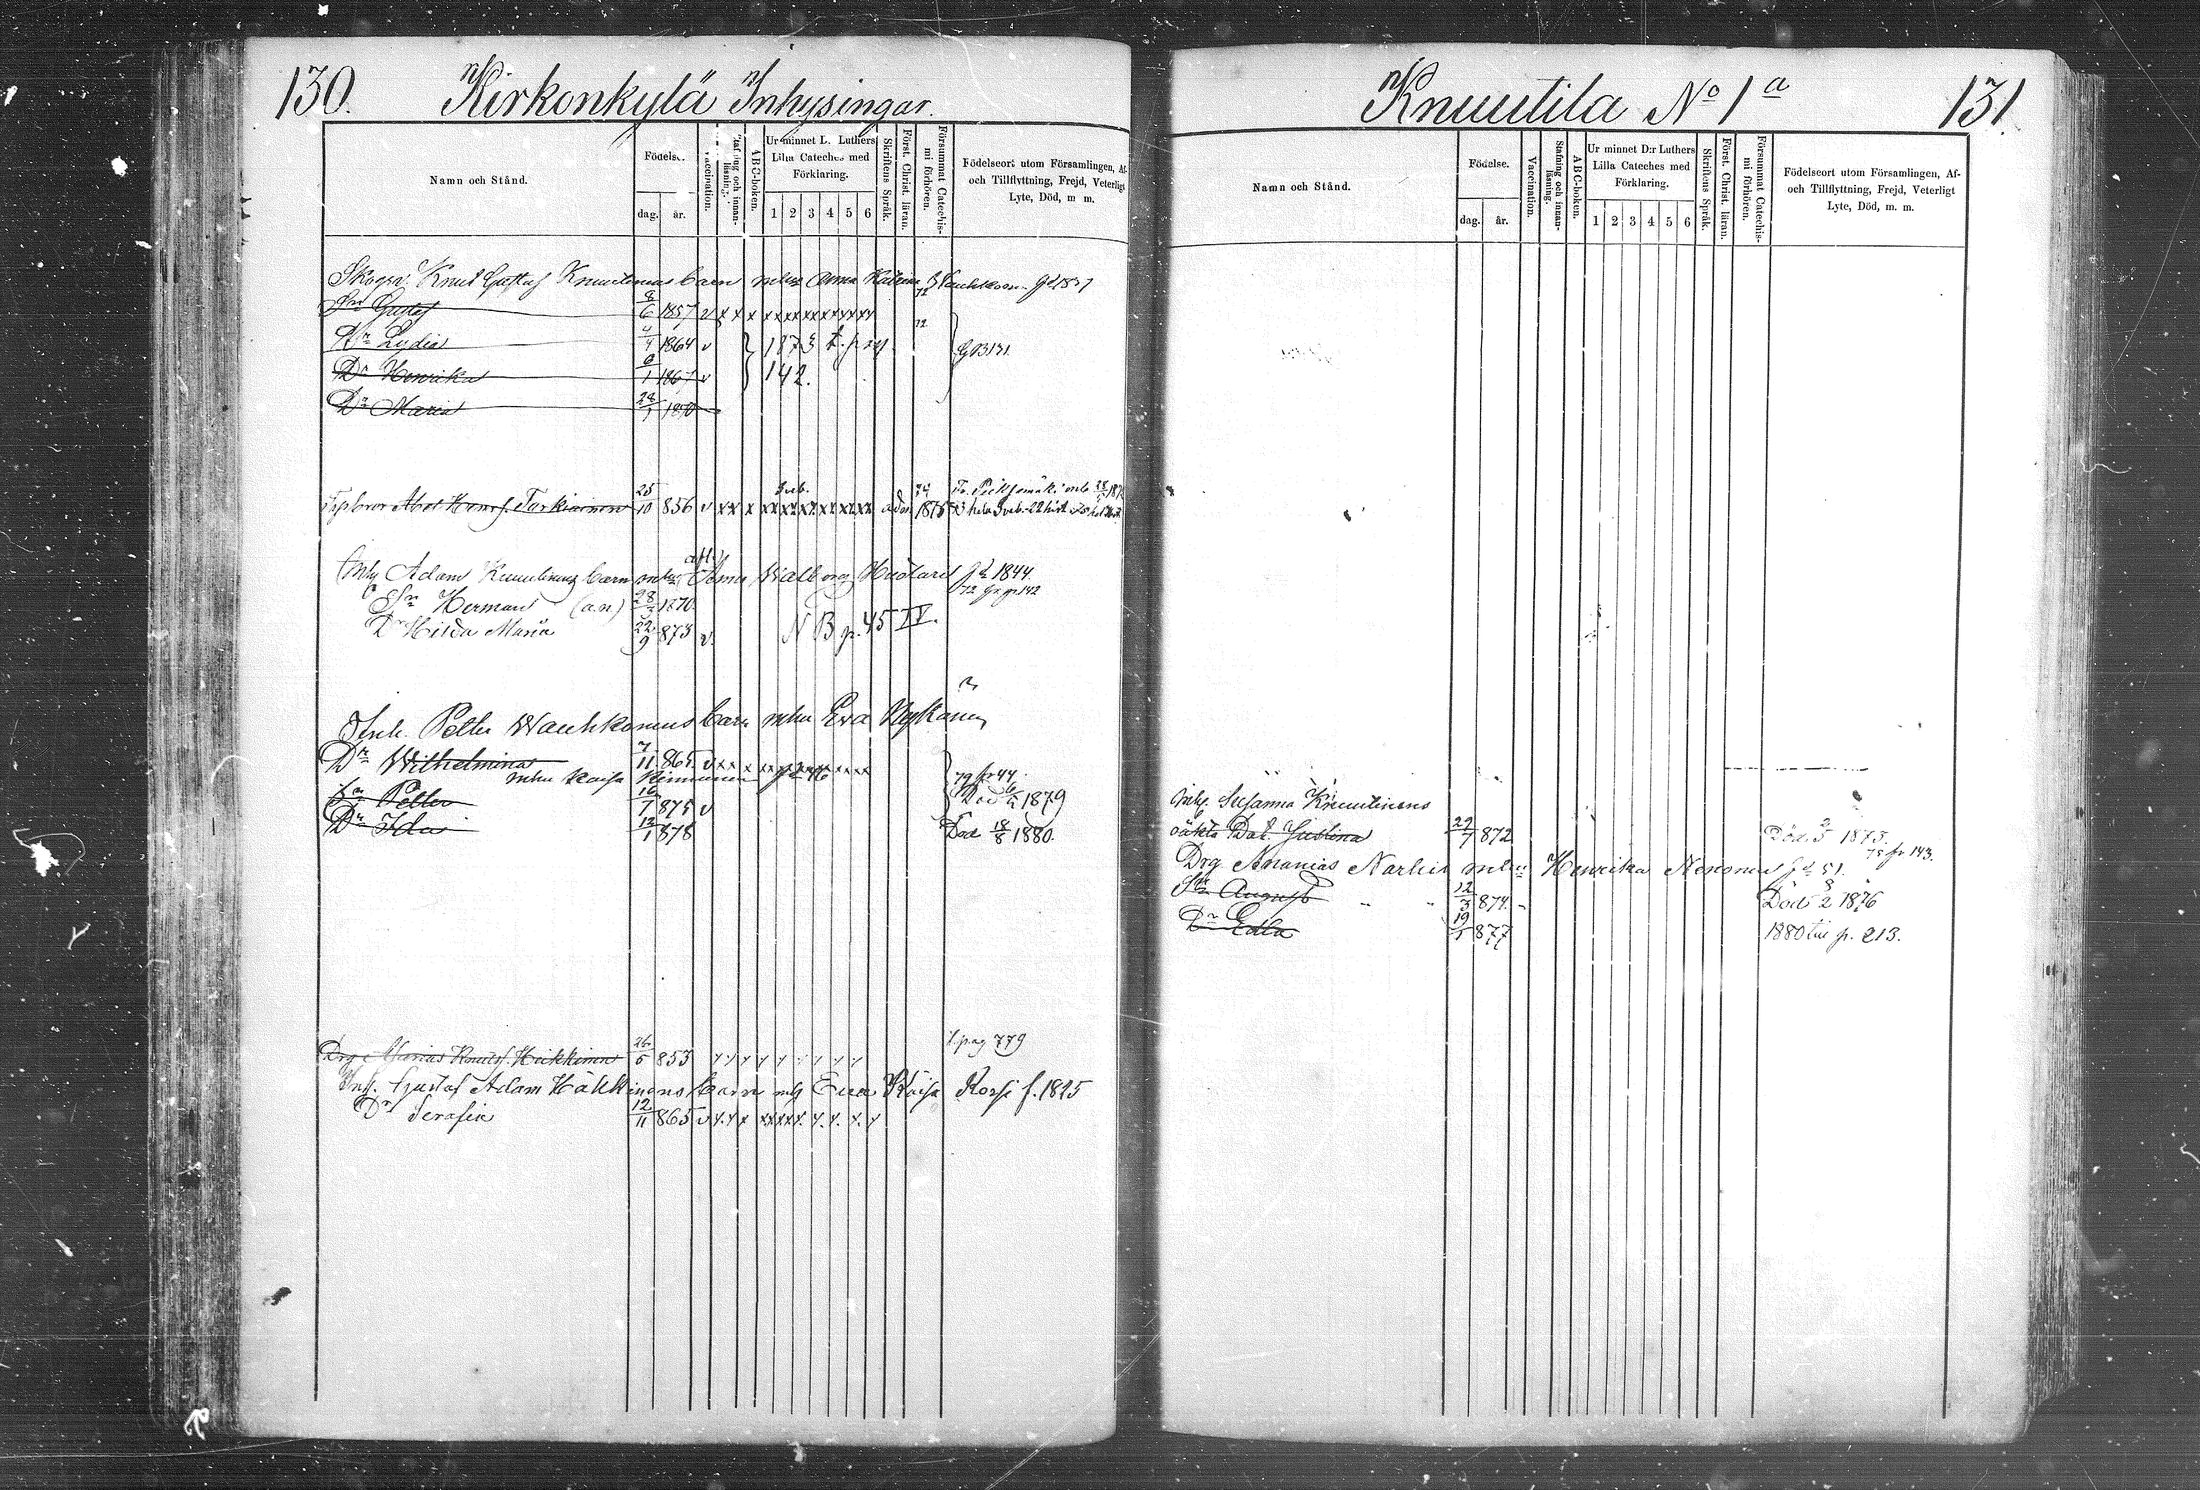 130.
Kirkonkylä Inhysingar.
Namn och Stånd.
Födelse.
dag. år.
Vaccination.
Stafning och innan-läsning.
ABC-boken.
Ur minnet D. Luthers Lilla Cateches med Förklaring.
1 2 3 4 5 6
Skriftens Språk.
Först. Christ. läran.
Försummat Catechis-mi förhören.
Födelseort utom Församlingen, Af-
och Tillflyttning, Frejd, Veterligt
Lyte, Död, m m.
Knut Gustaf Knuutinens barn mhu Anna Katrina
Sn Gustaf 8/6 1857 v x x x
Dr Lydia 4/4 1864 v 1873
Dr Henrika 1 1867 v 142.
Dr Maria 28/1 1870
Abel Henr. Turkiainen 25/10 856 v x x x 1875
Adam Knuutinens barn mhu Anna Walborg f. 1844
Sn Herman (a.n) 28 1870
Dr Hilda Maria 22/9 873 v. NB p. 45 IV.
Inh. Petter Wauhkonens barn mhu Eva Nykänen
Dr Wilhelmina 7/11 865 v x x x 79 fr 44
mhu Kaisa Kinnunen
Sn Petter 16/1 875 v Död 6/2 1879
Dr Ida 12/1 878 Död 18/8 1880.
Drg Heikkinen 26/5 853 t. pag 779
Inh. Gustaf Adam Häkkinens barn mhg Eva Kaisa f. 1815
Dr Serafia 12/11 865 v x x x
Knuutila No 1 a
131
Namn och Stånd.
Födelse.
dag. år.
Vaccination.
Stafning och innan-läsning.
ABC-boken.
Ur minnet D:r Luthers Lilla Cateches med Förklaring.
1 2 3 4 5 6
Skriftens Språk.
Först. Christ. läran.
Försummat Catechis-mi förhören.
Födelseort utom Församlingen, Af-
och Tillflyttning, Frejd, Veterligt
Lyte, Död, m. m.
Susanna Knuutinens
oäkta Dot. Justina 29/7 872 Död 2/5 1873.
75 fr 143.
Drg Ananias mhu Henrika f. 51.
Sn August 12/3 874. Död 8/2 1876
Dr Edla 19/1 877 1880 till p. 213.